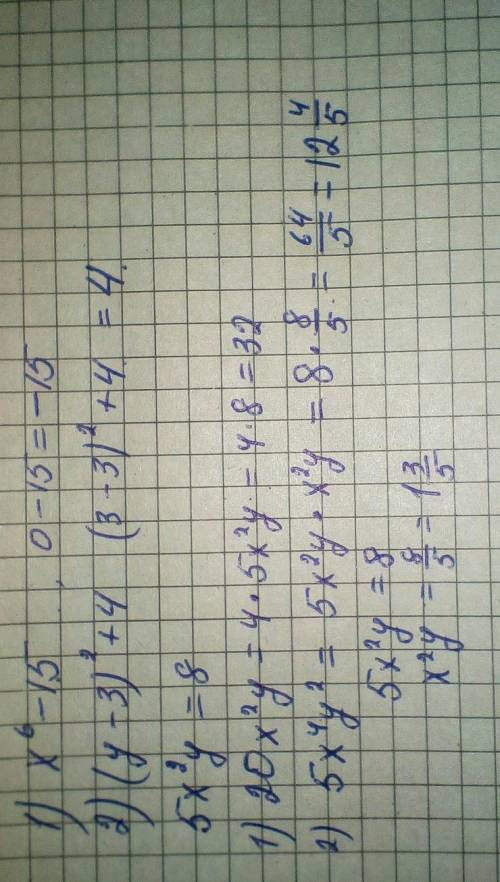 1) x⁶ - 15 , 0 - 15 = -15
2) (y - 3)² + 4 (3 - 3)² + 4 = 4.
5x²y = 8
1) 20x²y = 4 · 5x²y = 4 · 8 = 32
2) 5x⁴y² = 5x²y · x²y = 8 · 8/5 = 64/5 = 12 4/5
5x²y = 8
x²y = 8/5 = 1 3/5